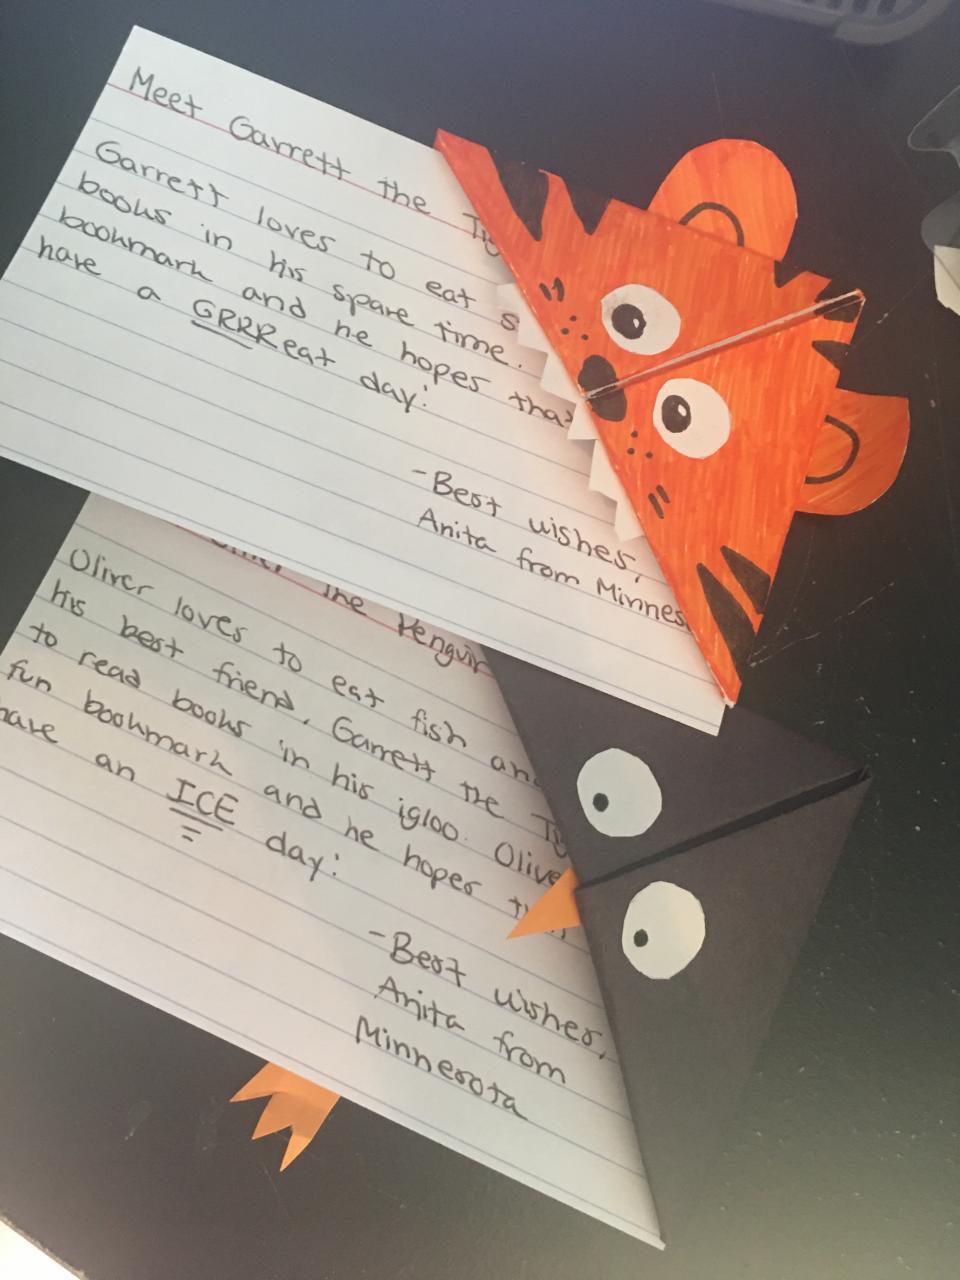 Meet Garrett the
Garrett loves to eat
books in his spare time.
bookmark and he hopes that
have a GRRReat day!
-Best wishes,
Anita from Minnes
the Penguin
Oliver loves to eat fish and
his best friend, Garrett the
to read books in his igloo. Olive
fun bookmark and he hopes
have an ICE day!
-Best wishes,
Anita from
Minnesota